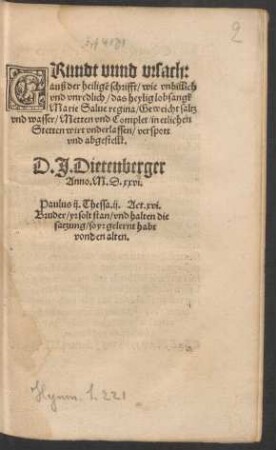 2
Grundt vnnd vrsach:
auß der heiligẽ schrifft/ wie vnbillich
vnd vnredlich/ das heylig lobsangk
Marie Salue regina/ Geweicht saltz
vnd wasser/ Metten vnd Complet/ in etlichen
Stetten wirt vnderlassen/ verspott
vnd abgestellt.
D. J. Dietenberger
Anno. M. D. xxvi.
Paulus ij. Thessa. ij. Act. xvi.
Bruder/ yr solt stan/ vnd halten die
satzung/ so yr gelernt habt
von den alten.
Hymn. h. 221